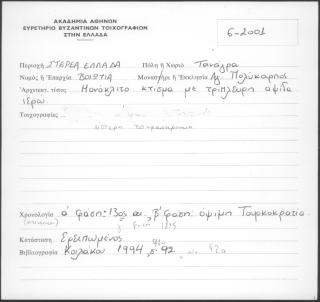 ΑΚΑΔΗΜΙΑ ΑΘΗΝΩΝ
ΕΥΡΕΤΗΡΙΟ ΒΥΖΑΝΤΙΝΩΝ ΤΟΙΧΟΓΡΑΦΙΩΝ
ΣΤΗΝ ΕΛΛΑΔΑ
6-2001
Περιοχή ΣΤΕΡΕΑ ΕΛΛΑΔΑ Πόλη ή Χωριό Τανάγρα
Νομός ή Ἐπαρχία ΒΟΙΩΤΙΑ Μοναστήρι ή Ἐκκλησία Αγ. Πολύκαρπος
Ἀρχιτεκτ. τύπος Μονόκλιτο κτίσμα με τρίπλευρη αψίδα
ιερού.
Τοιχογραφίες
Χρονολογία α' φαση: 13ος αι, β' φαση: όψιμη Τουρκοκρατία
Κατάσταση Ερειπωμένος
Βιβλιογραφία Κοιλάκου 1994, 92